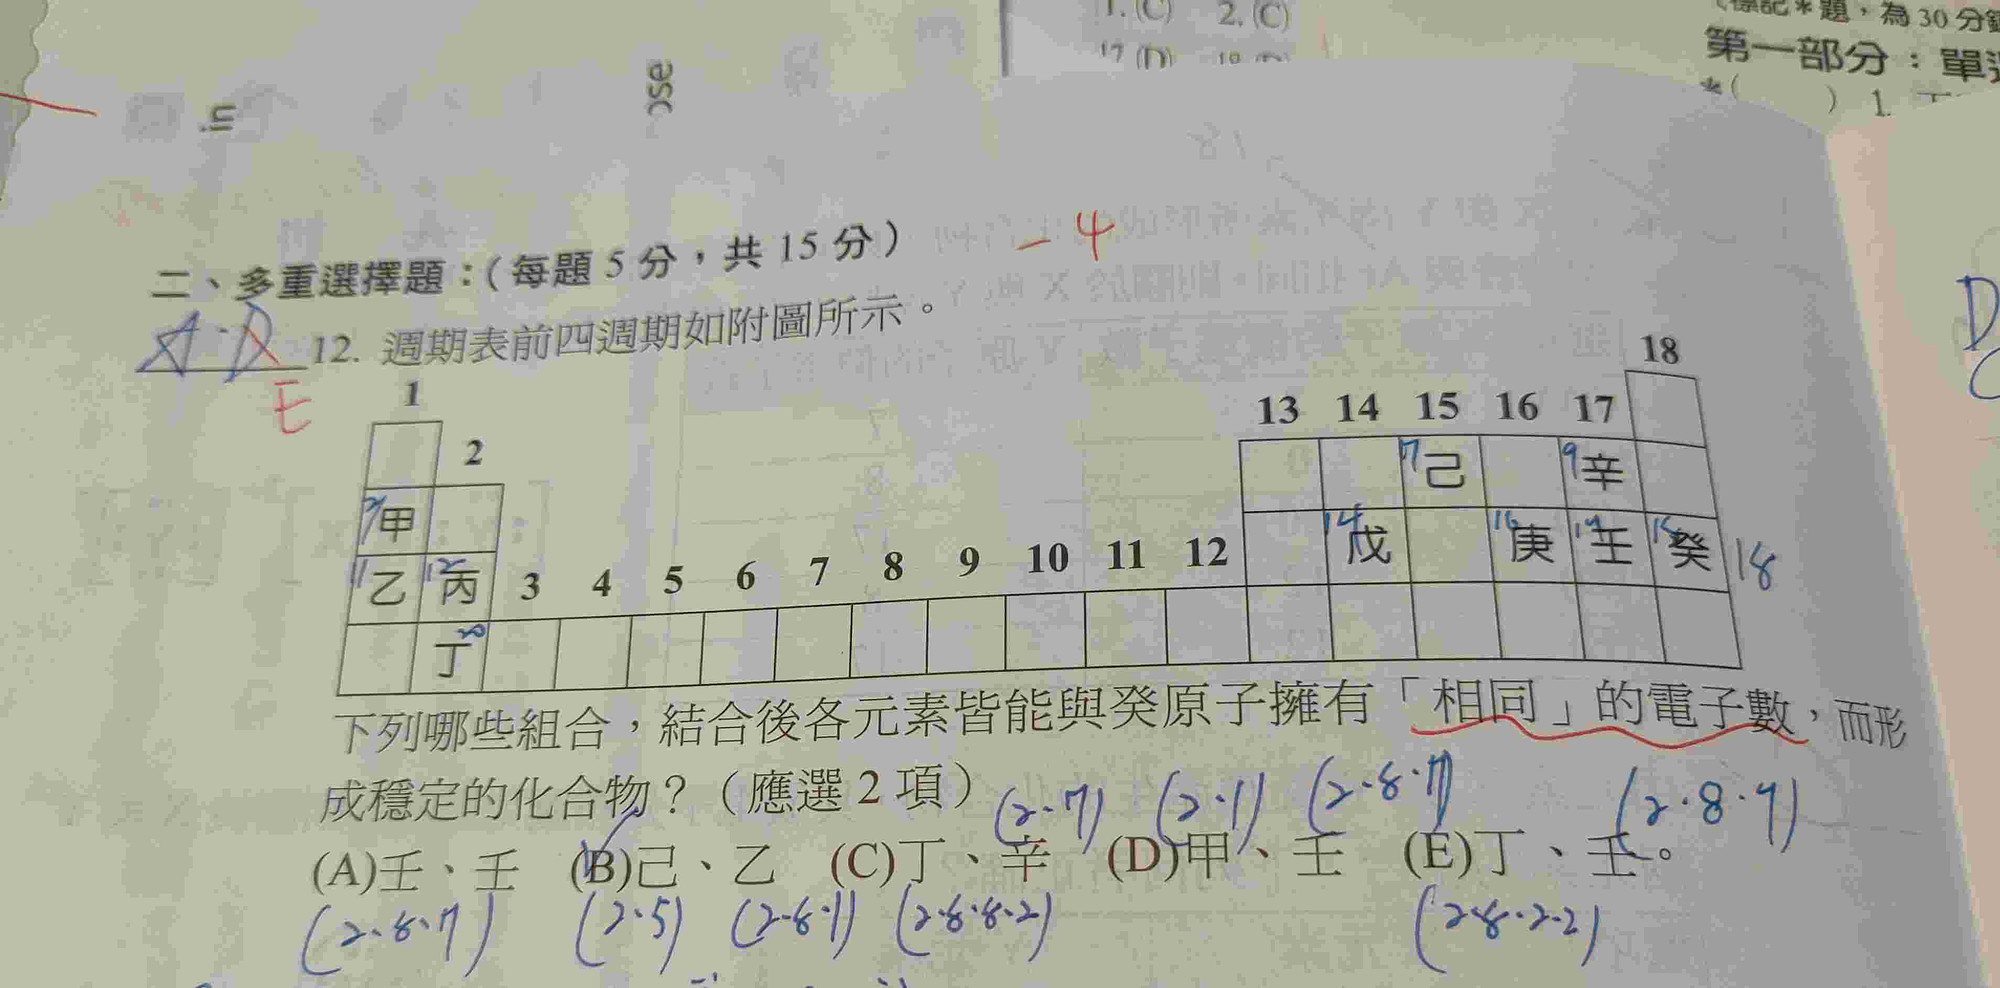 1. (C) 2. (C)
17 (D)
(標記*題，為30分鐘
第一部分：單選
*( ) 1.
in
ose
-4
二、多重選擇題：(每題5分，共15分)
A.D 12. 週期表前四週期如附圖所示。
E
18
1 13 14 15 16 17
2
7 己 9 辛
3 甲
14 戊 16 庚 17 壬 18 癸 18
11 乙 12 丙 3 4 5 6 7 8 9 10 11 12
丁 20
下列哪些組合，結合後各元素皆能與癸原子擁有「相同」的電子數，而形
成穩定的化合物？(應選2項)
(2.7) (2.1) (2.8.7) (2.8.7)
(A)壬、壬 (B)己、乙 (C)丁、辛 (D)甲、壬 (E)丁、壬。
(2.8.7) (2.5) (2.8.1) (2.8.8.2) (2.8.2.2)